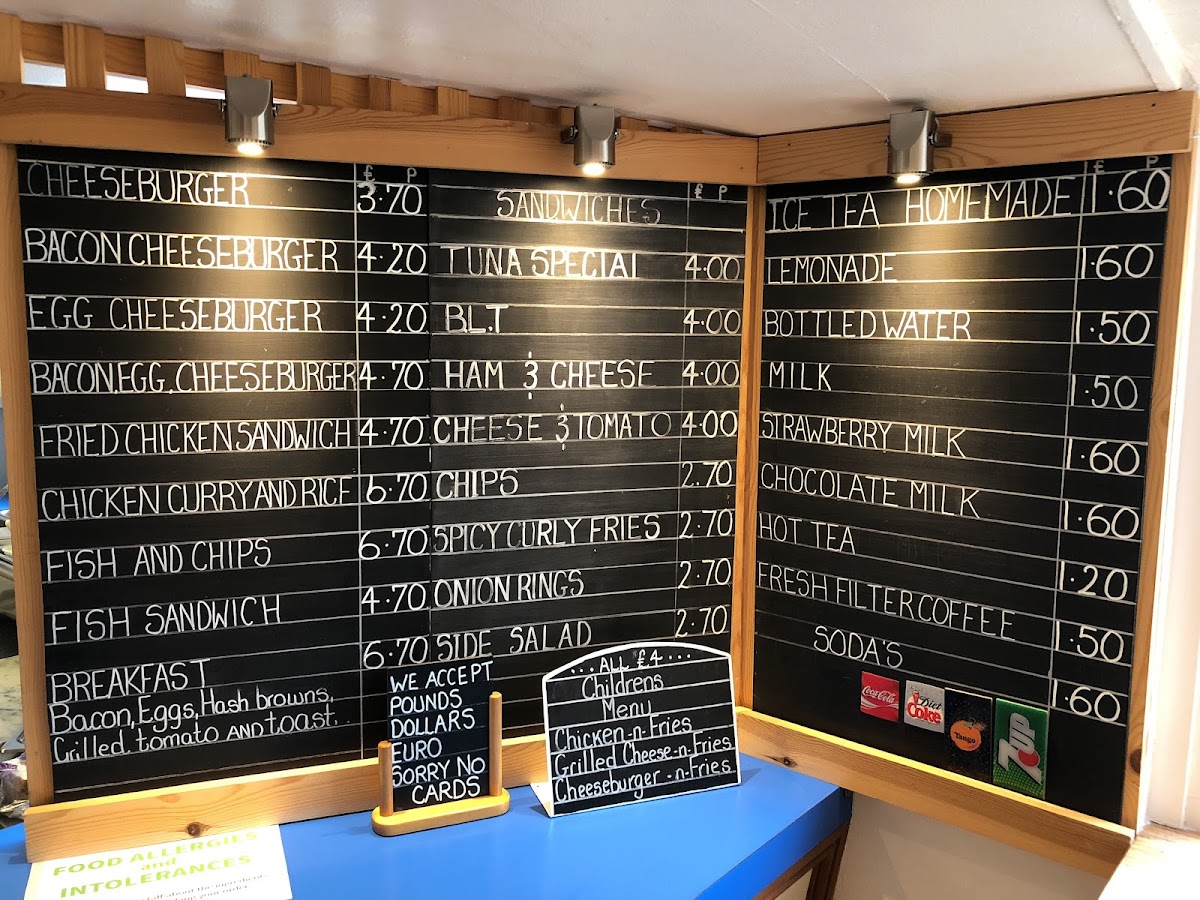 £ P
CHEESEBURGER 3.70
BACON CHEESEBURGER 4.20
EGG CHEESEBURGER 4.20
BACON,EGG,CHEESEBURGER 4.70
FRIED CHICKEN SANDWICH 4.70
CHICKEN CURRY AND RICE 6.70
FISH AND CHIPS 6.70
FISH SANDWICH 4.70
BREAKFAST 6.70
Bacon, Eggs, Hash browns,
Grilled tomato AND toast.
£ P
SANDWICHES
TUNA SPECIAL 4.00
BL.T 4.00
HAM & CHEESE 4.00
CHEESE & TOMATO 4.00
CHIPS 2.70
SPICY CURLY FRIES 2.70
ONION RINGS 2.70
SIDE SALAD 2.70
£ P
ICE TEA HOMEMADE 1.60
LEMONADE 1.60
BOTTLED WATER 1.50
MILK 1.50
STRAWBERRY MILK 1.60
CHOCOLATE MILK 1.60
HOT TEA 1.20
FRESH FILTER COFFEE 1.50
SODA'S 1.60
Coca-Cola
Diet
Coke
Tango
7UP
WE ACCEPT
POUNDS
DOLLARS
EURO
SORRY NO
CARDS
...ALL £4...
Childrens
Menu
Chicken-n-Fries
Grilled Cheese-n-Fries
Cheeseburger-n-Fries
FOOD ALLERGIES
and
INTOLERANCES
about the ingredients
your order